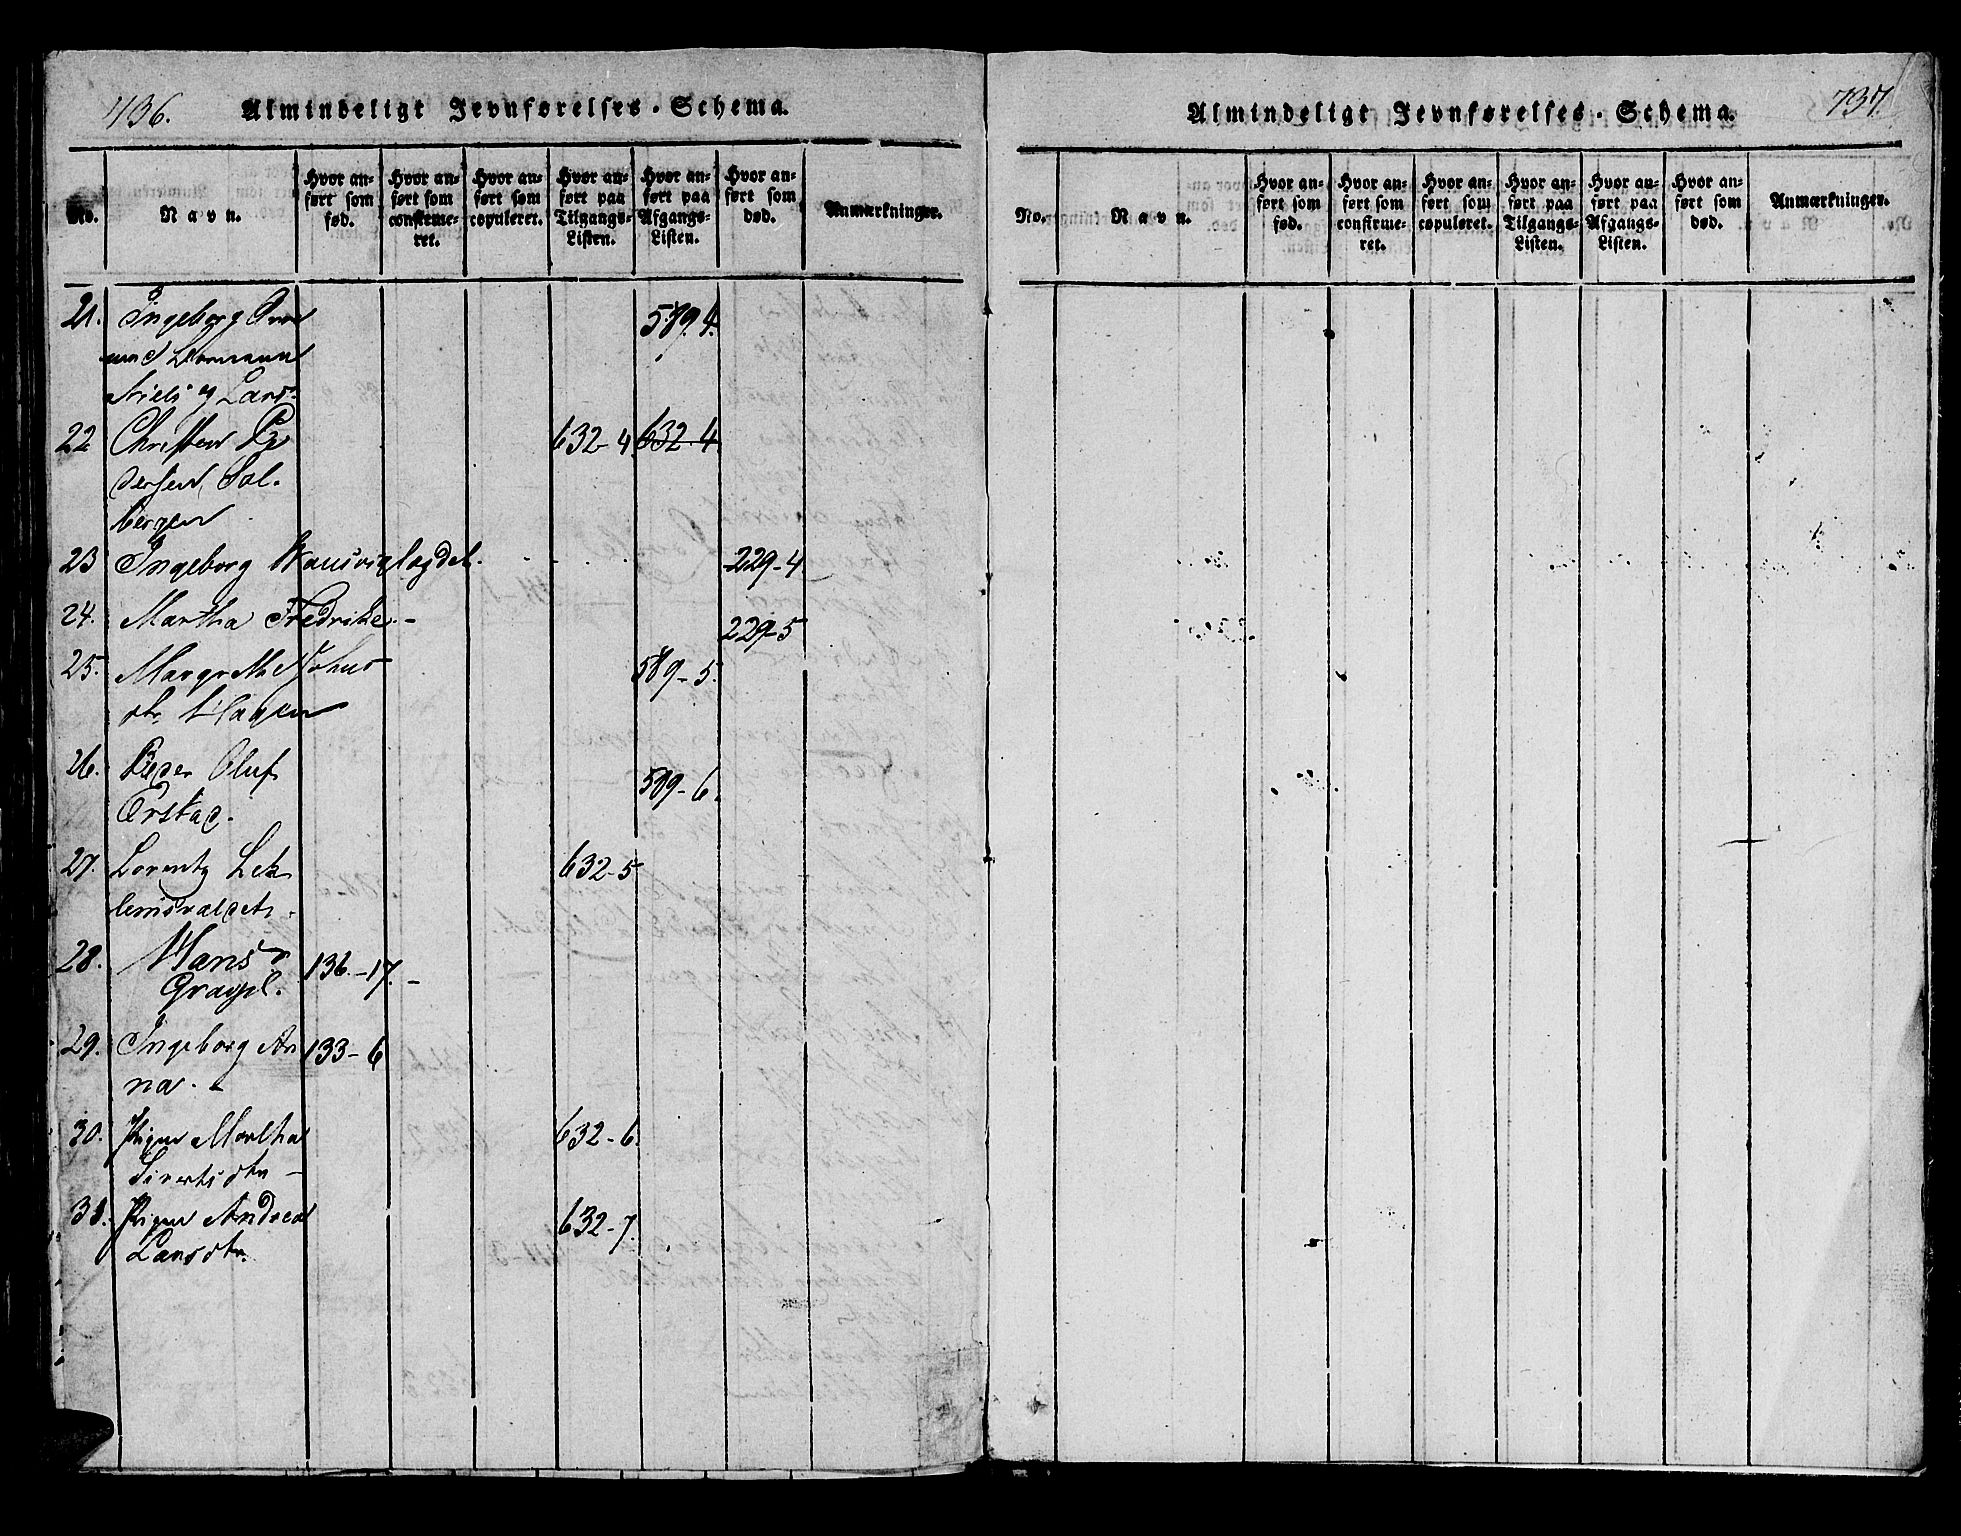 736.
Almindeligt Jevnførelses-Schema.
No.
Navn.
Hvor an-
ført som
fød.
Hvor an-
ført som
confirme-
ret.
Hvor an-
ført som
copuleret.
Hvor an-
ført paa
Tilgangs-
Listen.
Hvor an-
ført paa
Afgangs-
Listen.
Hvor an-
ført som
død.
Anmærkninger.
21. Ingeborg 589. 4.
Niels og Lars
22 Christen Pe 632-4 632-4
dersen Sol-
bergen
23 Ingeborg 229-4
24. Martha Fredrike.- 229-5
25. Margrethe Johns 589-5.
dtr. Hagen
26. Peder Oluf 589-6.
Ørstad.
27. Lorentz Lek 632-5
lemsvaldet.
28. Hans 136.-17.-
29. Ingeborg An 133-6
na. -
30. Pigen Martha 632-6.
Sivertsdtr -
31. Pigen Andrea 632-7.
Larsdtr.
Almindeligt Jevnførelses-Schema.
737.
No.
Navn.
Hvor an-
ført som
fød.
Hvor an-
ført som
confirme-
ret.
Hvor an-
ført som
copuleret.
Hvor an-
ført paa
Tilgangs-
Listen.
Hvor an-
ført paa
Afgangs-
Listen.
Hvor an-
ført som
død.
Anmærkninger.